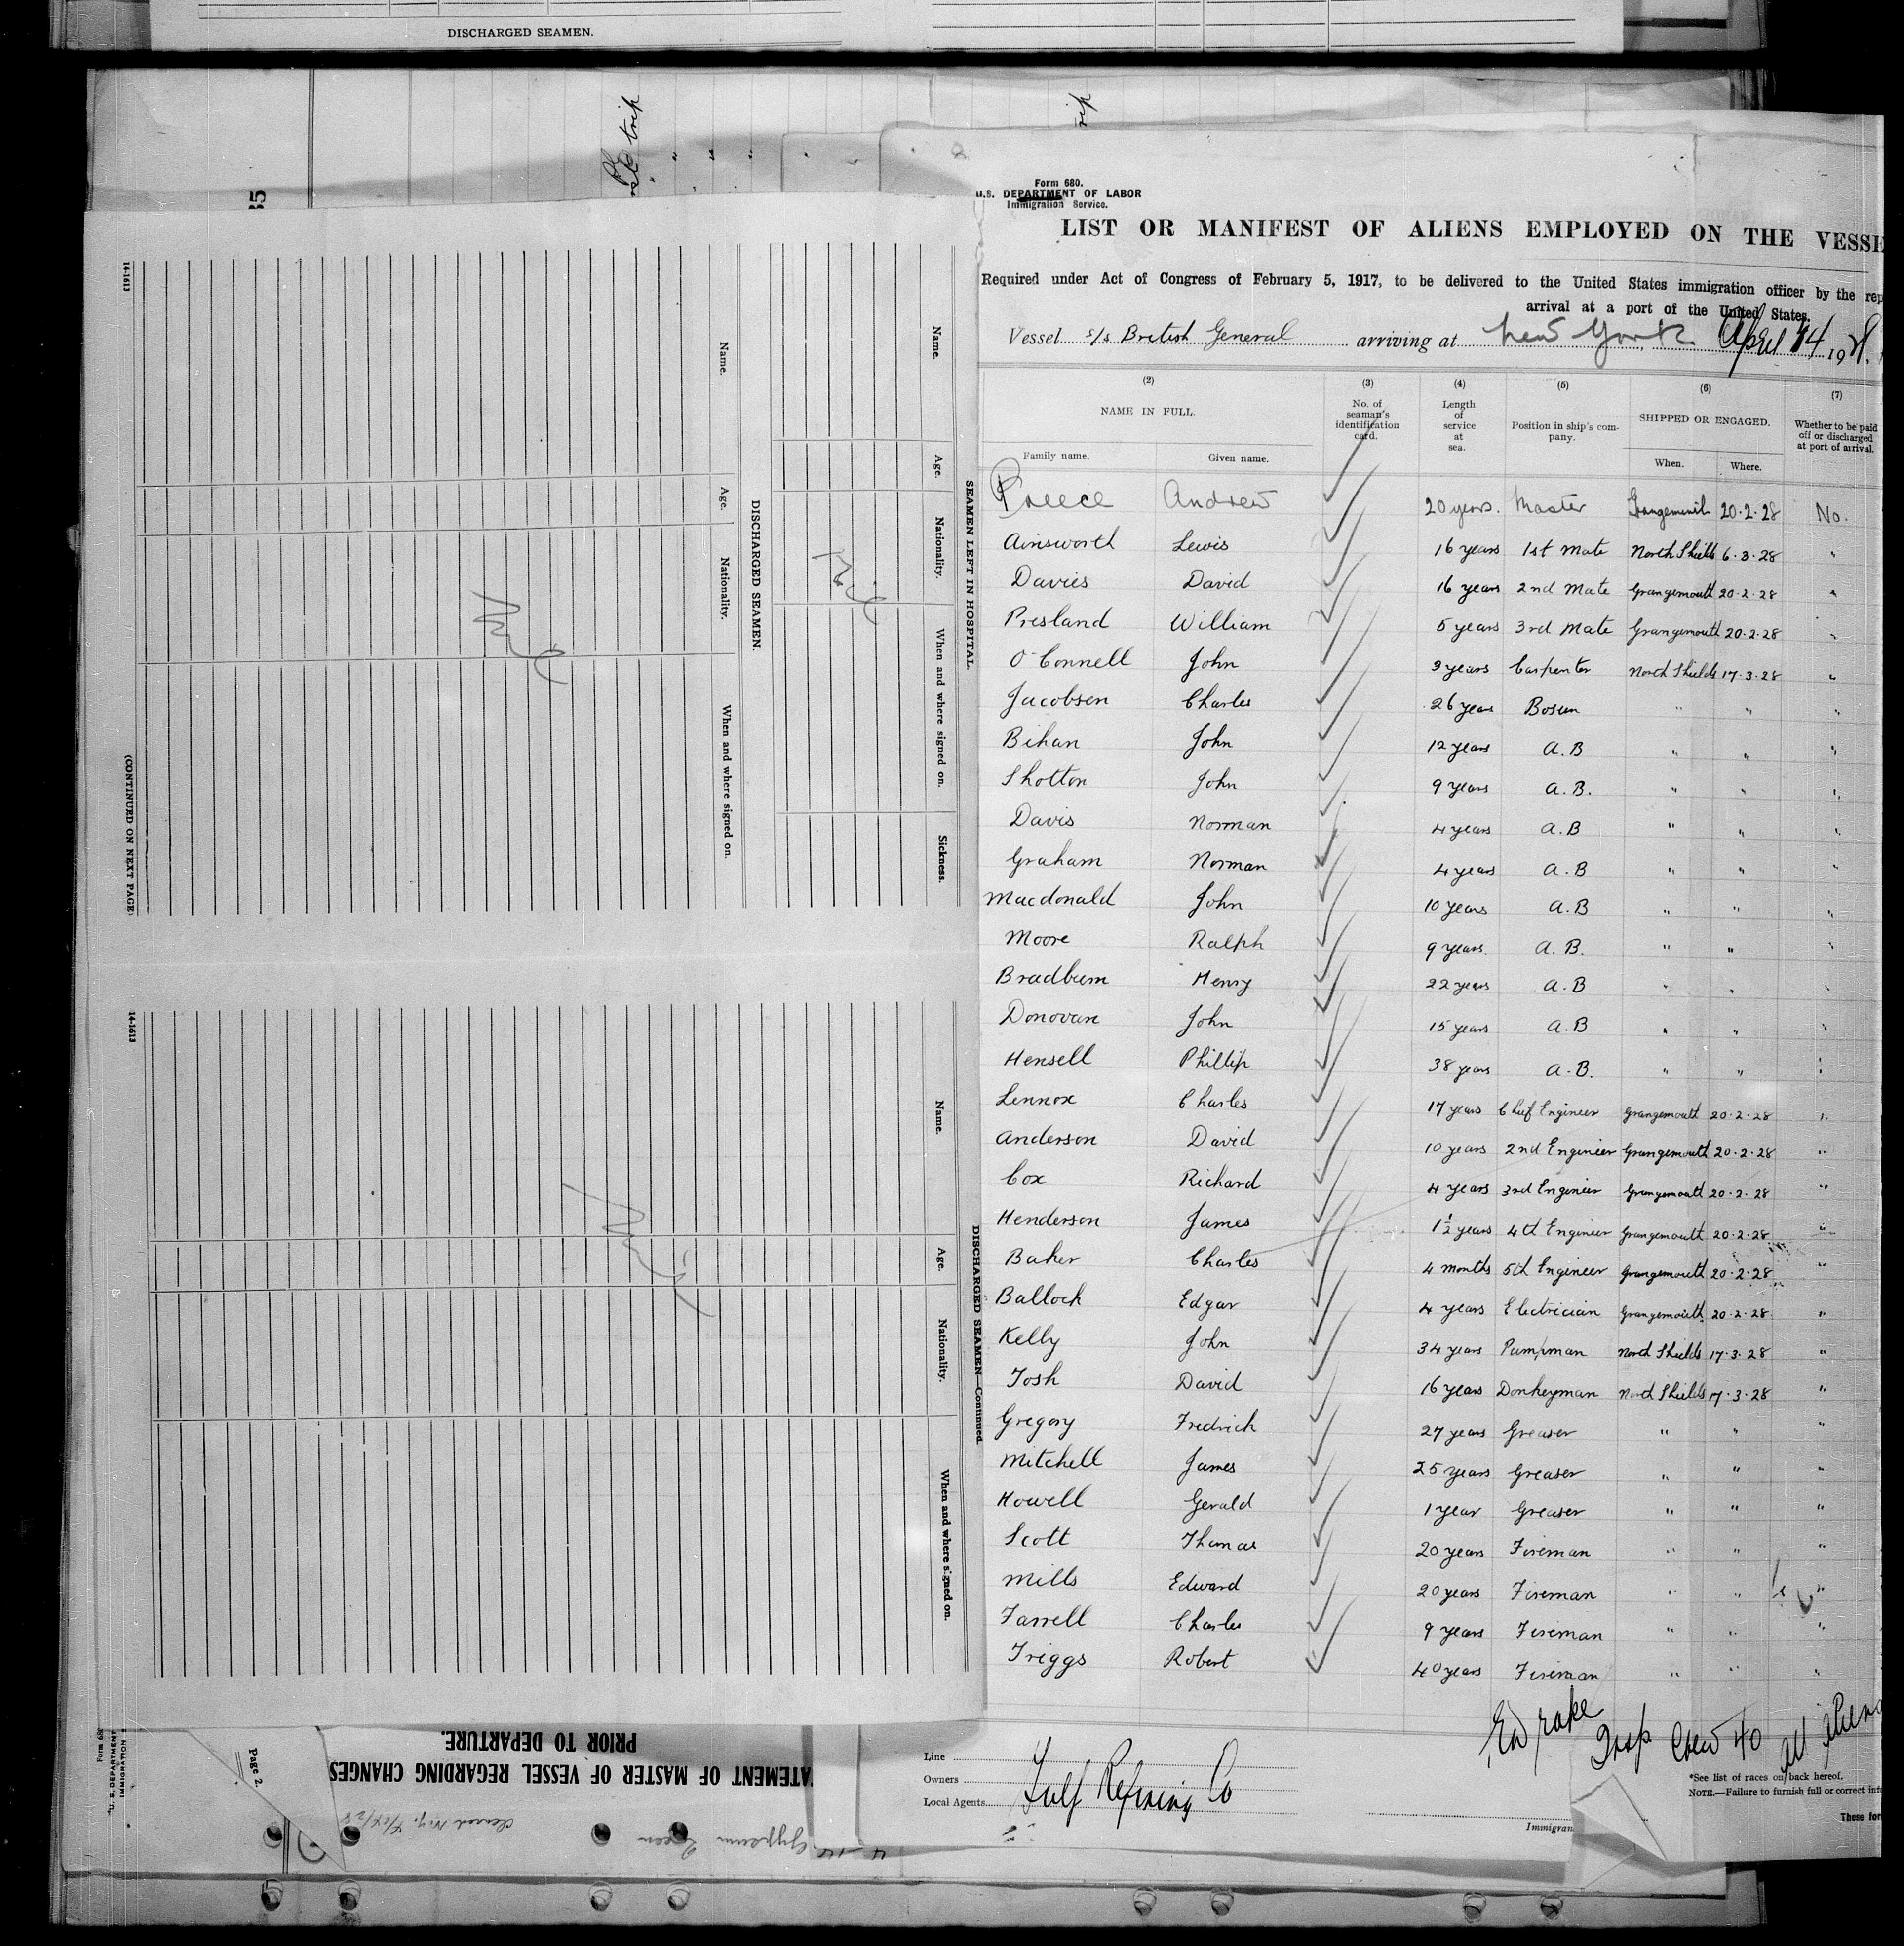 DISCHARGED SEAMEN.
trip
35
Form 680.
U.S. DEPARTMENT OF LABOR
Immigration Service.
LIST OR MANIFEST OF ALIENS EMPLOYED ON THE VESSE
Required under Act of Congress of February 5, 1917, to be delivered to the United States immigration officer by the rep
arrival at a port of the United States.
Vessel s/s British General arriving at New York April 14 1928.
(2) (3) (4) (5) (6) (7)
NAME IN FULL. No. of seaman's identification card. Length of service at sea. Position in ship's company. SHIPPED OR ENGAGED. Whether to be paid off or discharged at port of arrival.
Family name. Given name. When. Where.
Preece Andrew 20 years. Master Grangemouth 20.2.28 No.
Ainsworth Lewis 16 years 1st Mate North Shields 6.3.28 "
Davies David 16 years 2nd Mate Grangemouth 20.2.28 "
Presland William 5 years 3rd Mate Grangemouth 20.2.28 "
O'Connell John 3 years Carpenter North Shields 17.3.28 "
Jacobsen Charles 26 years Bosun " " "
Bihan John 12 years A.B " " "
Shotton John 9 years A.B. " " "
Davis Norman 4 years A.B " " "
Graham Norman 4 years A.B " " "
Macdonald John 10 years A.B " " "
Moore Ralph 9 years. A.B. " " "
Bradburn Henry 22 years A.B " " "
Donovan John 15 years A.B " " "
Hensell Phillip 38 years A.B. " " "
Lennox Charles 17 years Chief Engineer Grangemouth 20.2.28 "
Anderson David 10 years 2nd Engineer Grangemouth 20.2.28 "
Cox Richard 4 years 3rd Engineer Grangemouth 20.2.28 "
Henderson James 1½ years 4th Engineer Grangemouth 20.2.28 "
Baker Charles 4 months 5th Engineer Grangemouth 20.2.28 "
Ballock Edgar 4 years Electrician Grangemouth 20.2.28 "
Kelly John 34 years Pumpman North Shields 17.3.28 "
Tosh David 16 years Donkeyman North Shields 17.3.28 "
Gregory Fredrich 27 years Greaser " " "
Mitchell James 25 years Greaser " " "
Howell Gerald 1 year Greaser " " "
Scott Thomas 20 years Fireman " " "
Mills Edward 20 years Fireman " " "
Farrell Charles 9 years Fireman " " "
Triggs Robert 40 years Fireman " " "
Insp Crew 40 all aliens
Line
Owners
Local Agents Gulf Refining Co
*See list of races on back hereof.
NOTE.—Failure to furnish full or correct inf
Immigran
These for
SEAMEN LEFT IN HOSPITAL.
Name. Age. Nationality. When and where signed on. Sickness.
Nil
DISCHARGED SEAMEN.
Name. Age. Nationality. When and where signed on.
Nil
14-1613
(CONTINUED ON NEXT PAGE)
DISCHARGED SEAMEN—Continued.
Name. Age. Nationality. When and where signed on.
Nil
14-1613
ATEMENT OF MASTER OF VESSEL REGARDING CHANGES
PRIOR TO DEPARTURE.
Page 2
Form 68
U. S. DEPARTMENT
IMMIGRATION
Gypsum Queen